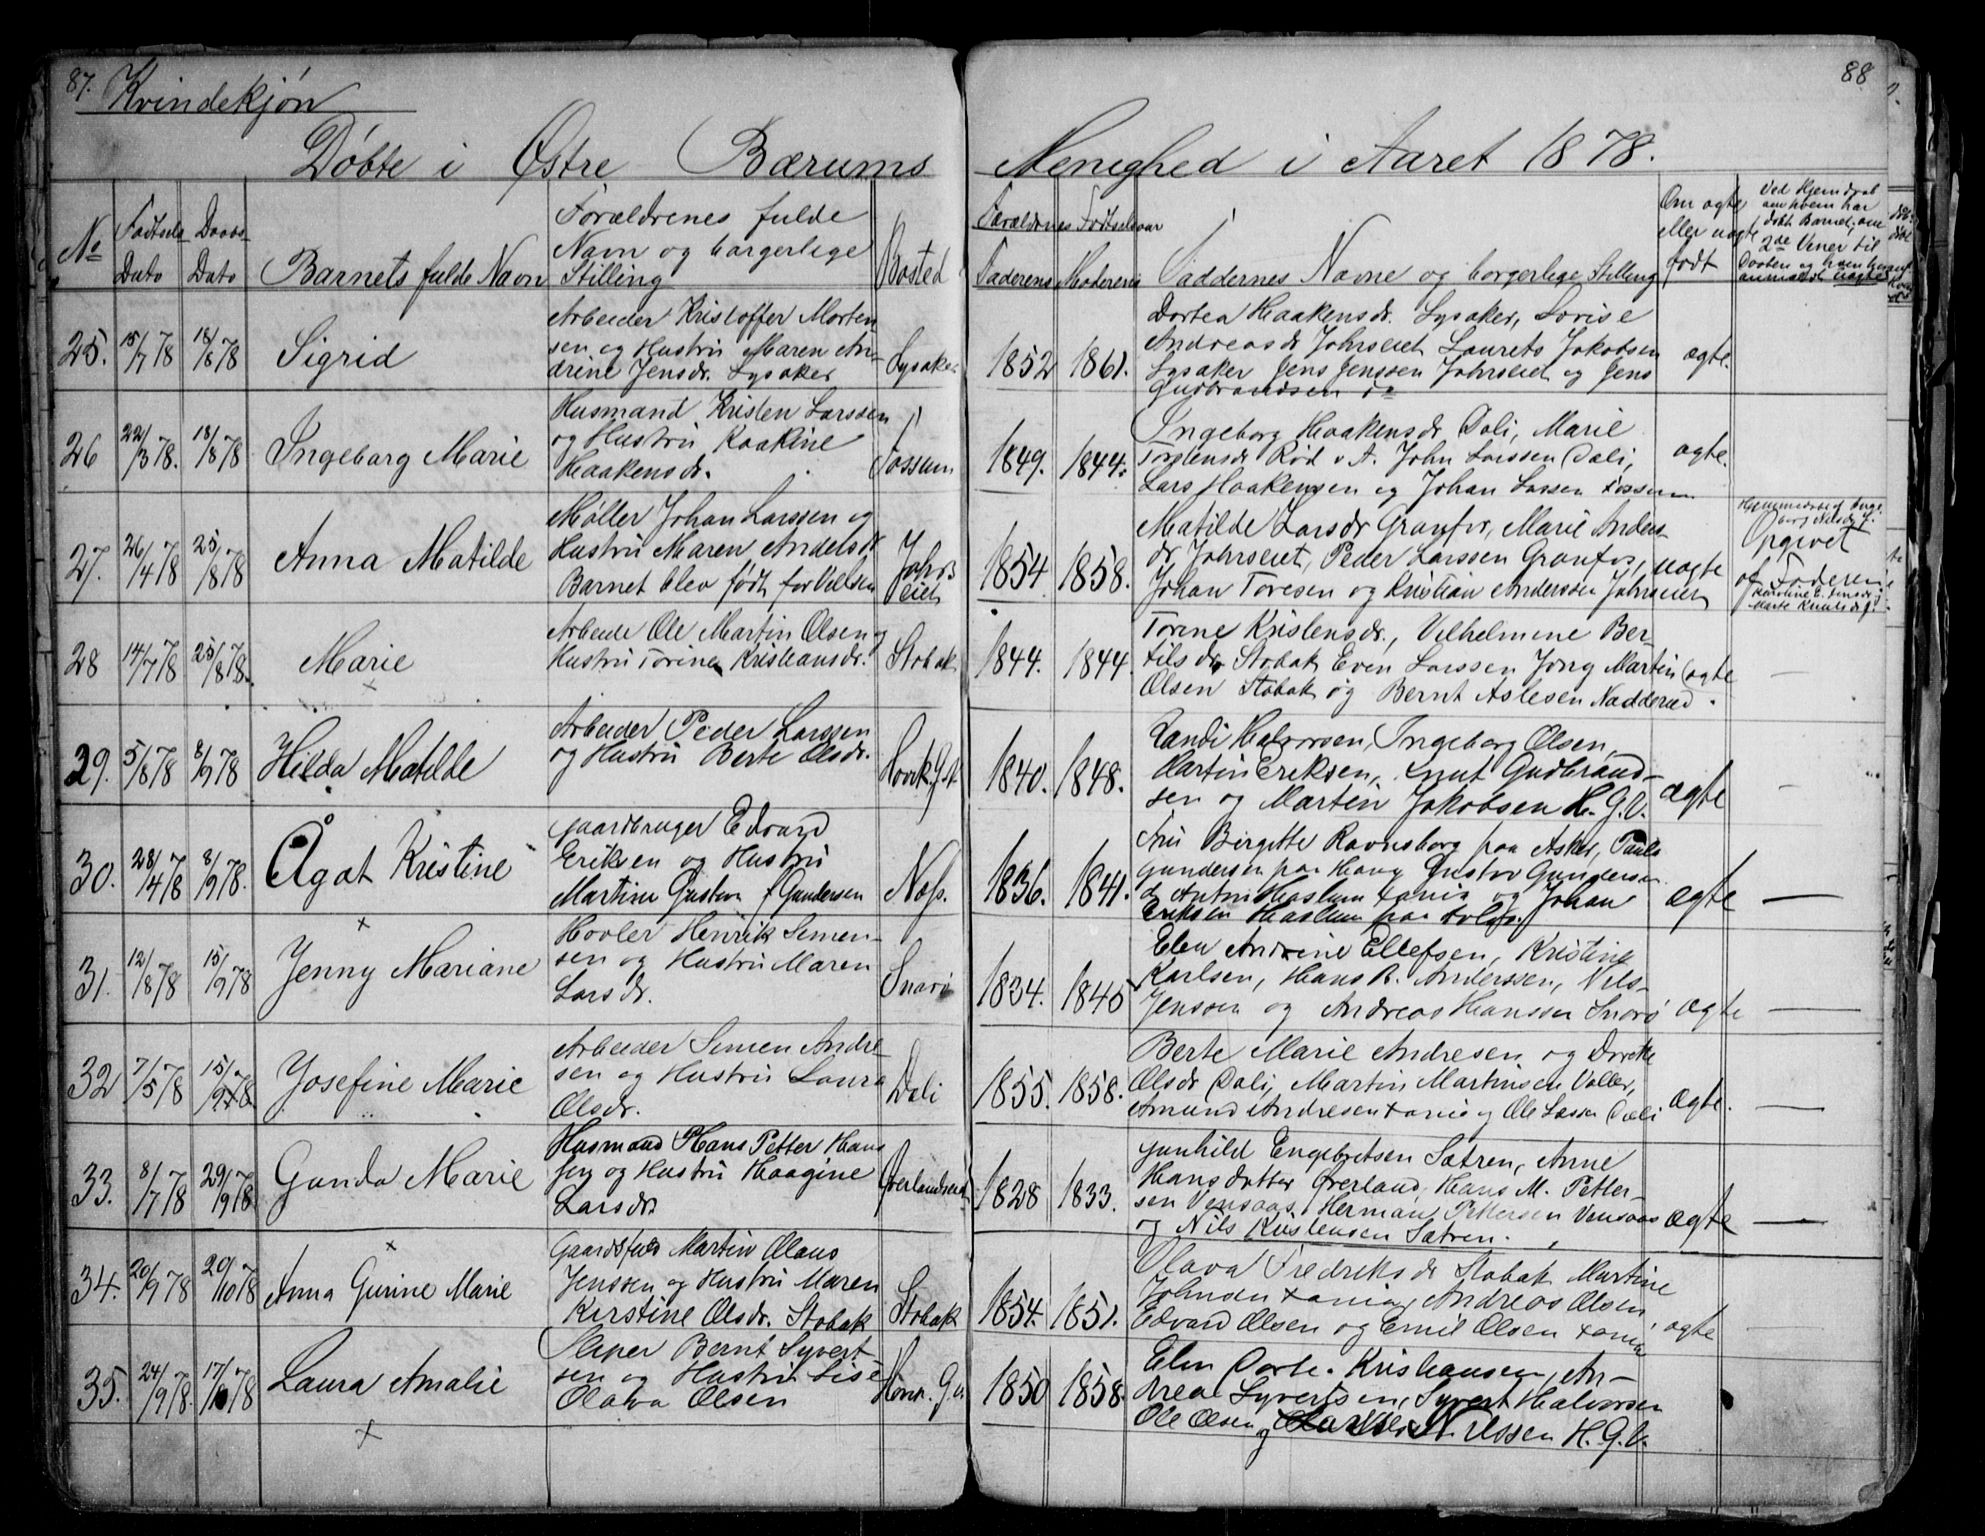 87. Kvindekjøn
Døbte i Østre Bærums Menighed i Aaret 1878.
88
No
Fødsels Dato
Daabs Dato
Barnets fulde Navn
Forældrenes fulde
Navn og borgerlige
Stilling
Bosted
Forældrenes Fødselsaar
Faderens Moderens
Faddernes Navne og borgerlige Stilling
Om ægte
eller uægte
født
Ved Hjemdaab
om hvem har
døbt Barnet, om
2de Viner til
Daaben og hvem har
anmeldt uægte
25. 15/7 78 18/8 78 Sigrid
Arbeider Kristoffer Morten
sen og Hustru Maren An-
drine Jensdr. Lysaker
Lysaker
1852 1861.
Dortea Haakensdr. Lysaker, Lovise
Andreasdr Jahrseiet Laurets Jakobsen
Lysaker Jens Jenssen Jahrseiet og Jens
Gudbrandsen do
ægte.
26 22/3 78. 18/8 78 Ingeborg Marie
Husmand Kristen Larssen
og Hustru
Haakensdr.
Fossum
1849. 1844.
Ingeborg Haakensdr Dali, Marie
Torstensdr Rød v A. John Larssen Dali,
Lars Haakensen og Johan Lassen Fossum
ægte.
27. 26/4 78 25/8 78 Anna Matilde
Møller Johan Larssen og
Hustru Maren Andersdr
Barnet blev født for Vielsen
Jahrs
eiet
1854 1858.
Matilde Larsdr Granfos, Marie Anders
dr Jahrseiet, Peder Larssen Granfos,
Johan Toresen og Kristian Anderssen Jahrseiet
uægte
Hjemmedøbt af Inge
borg Nilsdr J.
Opgivet
af Faderen
Marte Knutsdr
28 14/7 78 25/8 78. Marie
Arbeide Ole Martin Olsen og
Hustru Torine Kristiansdr.
Stabæk
1844. 1844
Torine Kristensdr., Vilhelmine Ber-
tilsdr Stabæk Even Larssen Jong Martin
Olsen Stabæk og Bernt Aslesen Nadderud.
ægte
29. 5/8 78 8/9 78 Hilda Matilde
Arbeider Peder Larssen
og Hustru Berte Olsdr.
1840. 1848.
Randi Halvorsen, Ingeborg Olsen,
Martin Eriksen, Knut Gudbrand-
sen og Martin Jakobsen H. G. V.
ægte
30. 28/4 78 8/9 78. Ågat Kristine
Gaardbruger Edvard
Eriksen og Hustru
Martine Gustava f Gundersen
Næs.
1836. 1841.
Fru Birgitte Ravnsborg paa Asker,
Gundersen paa Gustav Gundersen
Anton Haslum Xania og Johan
Eriksen Haslum paa
ægte
31. 12/8 78 15/9 78 Jenny Mariane
Høvler Henrik Simen-
sen og Hustru Maren
Larsdr.
Snarø
1834. 1845
Elen Andrine Ellefsen, Kristine
Karlsen, Hans A. Anderssen, Nils
Jenssen og Andreas Hanssen Snarø
ægte
32 7/5 78 15/9 78. Josefine Marie
Arbeider Simen Andre-
sen og Hustru Laura
Olsdr.
Dali
1855. 1858.
Berte Marie Andresen og Dorthe
Olsdr Dali, Martin Martinsen Voller,
Amund Andresen Xania og Ole Lassen Dæli
ægte.
33. 8/7 78 29/9 78. Gunda Marie
Husmand Hans Petter Hans
sen og Hustru Haagine
Larsdr
Øverlandseiet
1828 1833.
Gunhild Engebretsen Sætren, Anne
Hansdatter Øverland, Hans M. Petter-
sen Vensaas, Herman Pettersen Vensaas
og Nils Kristensen Sætren.
ægte
34. 20/9 78 20/10 78 Anna Gurine Marie
Martin Olaus
Jenssen og Hustru Maren
Kirstine Olsdr. Stabæk
Stabæk
1854. 1851.
Olava Fredriksdr Stabæk Martine
Johnsen Xania, Andreas Olsen
Edvard Olsen og Emil Olsen Xania
ægte
35. 24/9 78. 17/10 78 Laura Amalie
Sliper Bernt Syvert
sen og Hustru Lise
Olava Olsen
Høvik. G.V.
1850 1858.
Elin Dorte. Kristiansen, An-
drea Syvertsen, Syvert Halvorsen
Ole Olsen og Nilssen H. G. V.